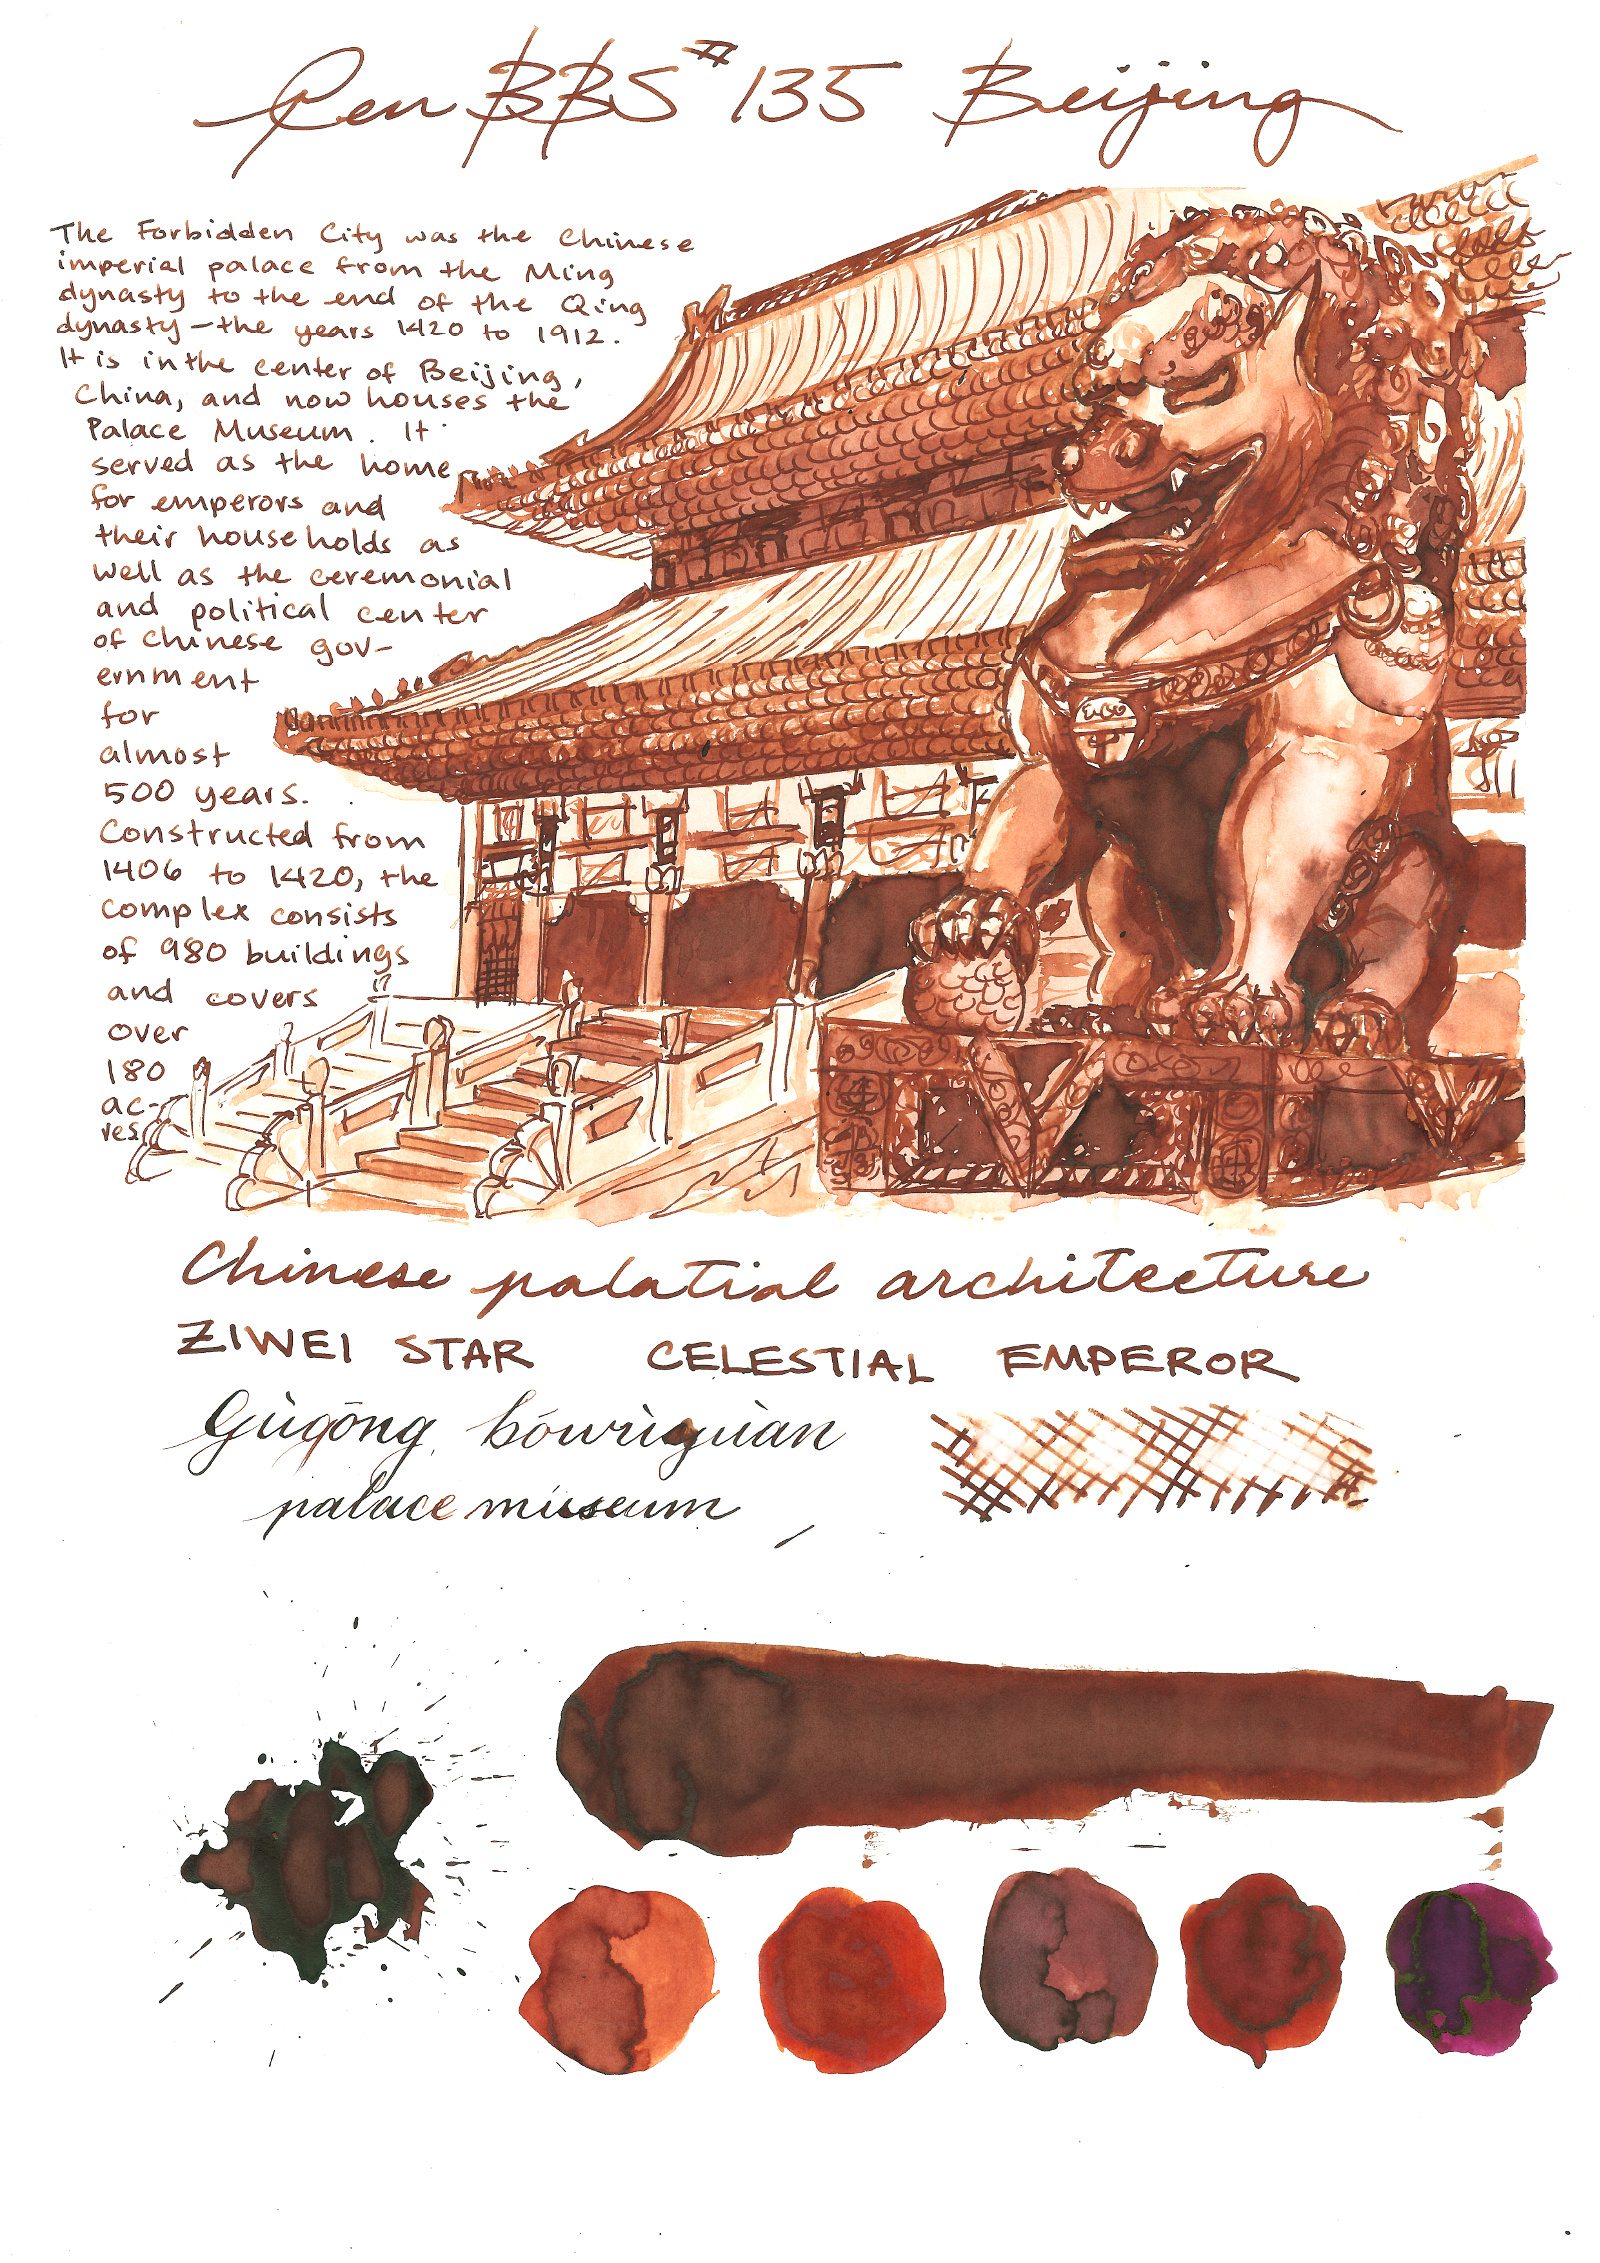 Pen BBS #135 Beijing
The Forbidden City was the Chinese
imperial palace from the Ming
dynasty to the end of the Qing
dynasty – the years 1420 to 1912.
It is in the center of Beijing,
China, and now houses the
Palace Museum. It
served as the home
for emperors and
their households as
well as the ceremonial
and political center
of Chinese gov-
ernment
for
almost
500 years.
Constructed from
1406 to 1420, the
complex consists
of 980 buildings
and covers
over
180
ac-
res.
Chinese palatial architecture
ZIWEI STAR CELESTIAL EMPEROR
Gùgōng bówùguàn
palace museum